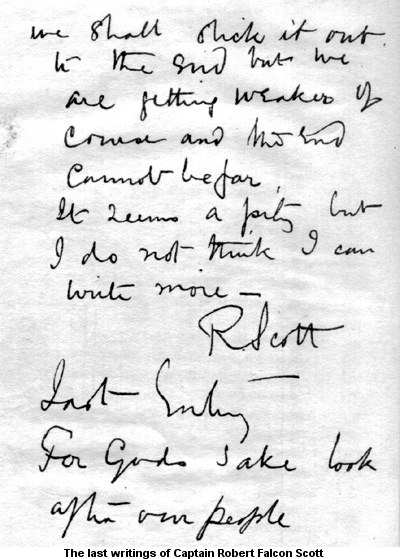 we shall stick it out
to the end but we
are getting weaker of
course and the end
cannot be far.
It seems a pity but
I do not think I can
write more —
R. Scott
Last Entry
For Gods sake look
after our people
The last writings of Captain Robert Falcon Scott